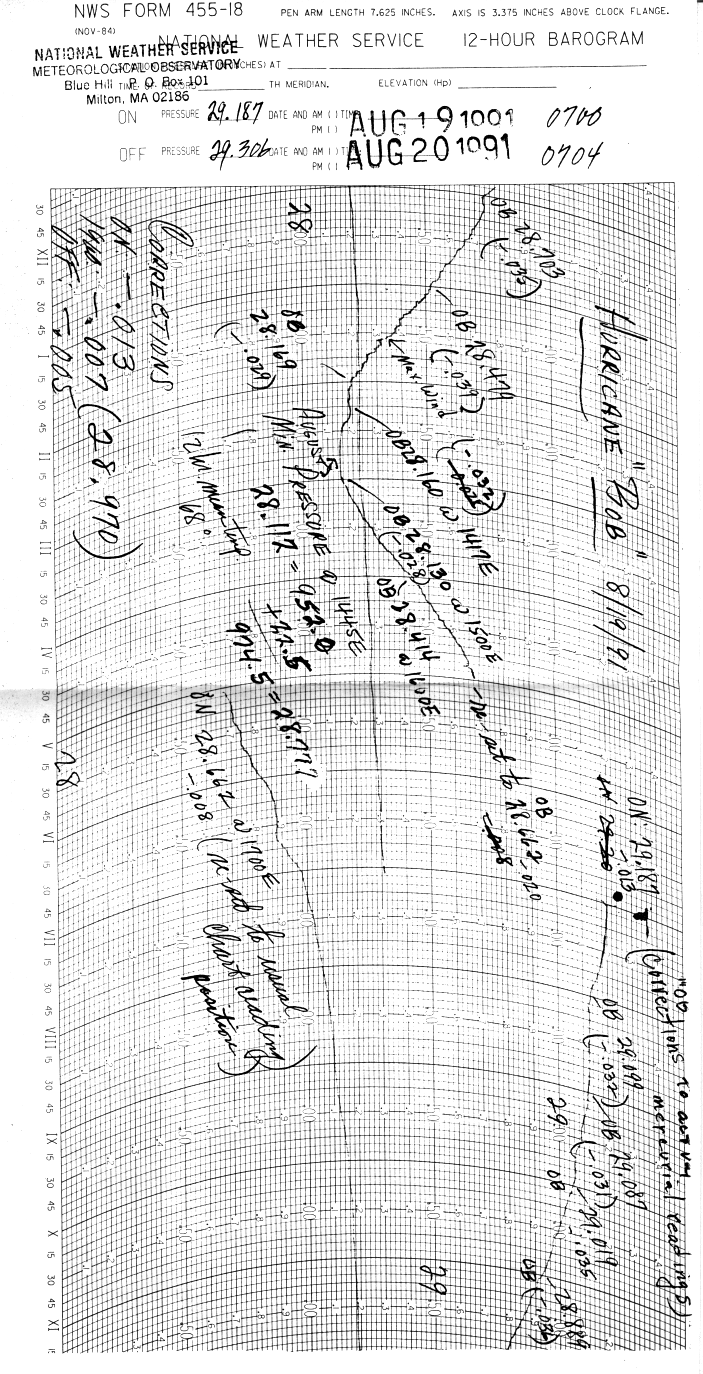 NWS FORM 455-18
PEN ARM LENGTH 7.625 INCHES. AXIS IS 3.375 INCHES ABOVE CLOCK FLANGE.
(NOV-84)
NATIONAL WEATHER SERVICE 12-HOUR BAROGRAM
NATIONAL WEATHER SERVICE
METEOROLOGICAL OBSERVATORY
Blue Hill P. O. Box 101
Milton, MA 02186
AT
TH MERIDIAN. ELEVATION (Hp)
ON PRESSURE 29.187 DATE AND AM ( ) TIME
PM ( )
AUG 19 1991 0700
OFF PRESSURE 29.306 DATE AND AM ( ) TIME
PM ( )
AUG 20 1991 0704
HURRICANE "BOB" 8/19/91
ON 29.187
-.013
(Corrections to actual
mercurial readings)
"OB"
OB 29.099
(-.032)
OB 29.087
(-.031)
29.019
-.035
OB
28.889
OB (-.036)
29
29
OB 28.703
(-.033)
OB 28.479
(-.039)
Max Wind
(-.032)
OB 28.160 @ 1417E
OB 28.130 @ 1500E
(-.028)
OB 28.414
@ 1600E
re-set to 28.662
OB
-.020
-.008
28
OB
28.169
(-.029)
AUGUST
MIN. PRESSURE @ 1445E
28.112 = 952.0
+22.5
974.5 = 28.777
12 hr mean temp
68°
CORRECTIONS
ON -.013
-.007 (28.970)
OFF -.005
28
ON 28.662 @ 1700E
-.008 (re-set to usual
chart reading
position)
30 45 XII 15 30 45 I 15 30 45 II 15 30 45 III 15 30 45 IV 15 30 45 V 15 30 45 VI 15 30 45 VII 15 30 45 VIII 15 30 45 IX 15 30 45 X 15 30 45 XI 15